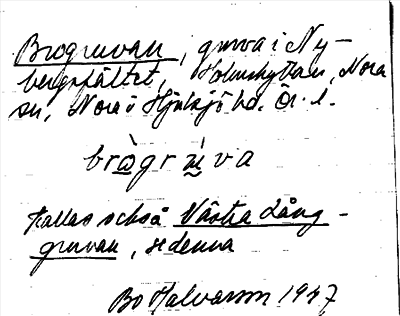 Brogruvan, gruva i Ny-
bergsfältet, Holmhyttan, Nora
sn, Nora o Hjulsjö hd. Ör. l.
brògrú̱va
Kallas också Västra Lång-
gruvan, se denna
Bo Halvarson 1947